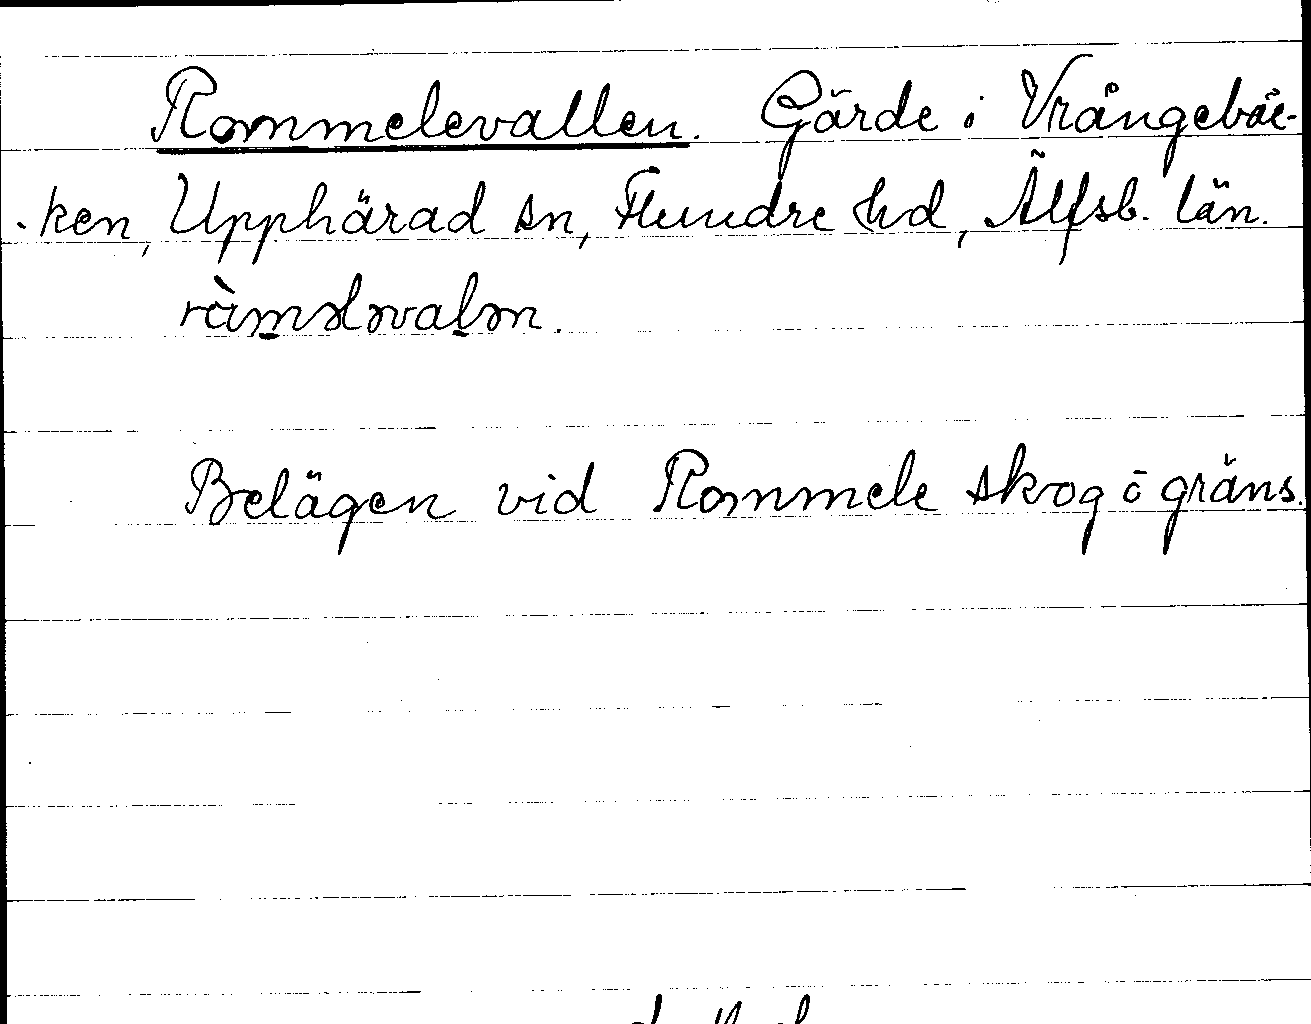 Rommelevallen. Gärde i Vrångebäc-
-ken, Upphärad sn, Flundre hd, Älfsb. län.
ràmələvalən.
Belägen vid Rommele skog o gräns.